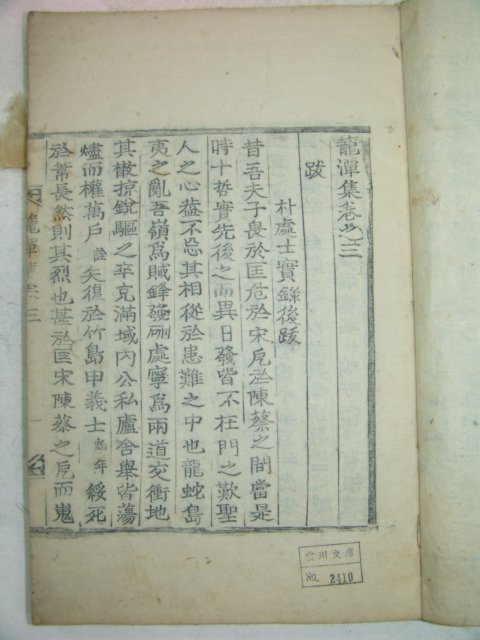 龍潭集卷之三
跋
朴處士實錄後跋
昔吾夫子畏於匡危於宋戹於陳蔡之間當是
時十哲實先後之而異日發皆不在門之歎聖
人之心葢不忘其相從於患難之中也龍蛇島
夷之亂吾嶺爲賊鋒發硎處寧爲兩道交衝地
其散掠銳驅之卒充滿域內公私廬舍擧皆蕩
燼而權萬戶詮矢復於竹島甲義士乾年綏死
於常長然則其烈也甚於匡宋陳蔡之戹而鬼
龍潭集卷三
一
文庫
No. 2410